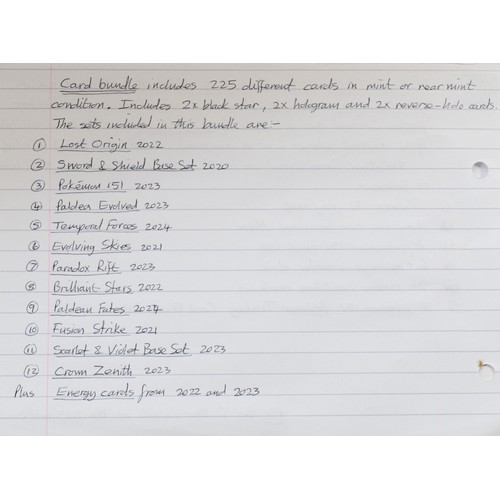 Card bundle includes 225 different cards in mint or near mint
condition. Includes 2x black star, 2x hologram and 2x reverse-holo cards.
The sets included in this bundle are:-
① Lost Origin 2022
② Sword & Shield Base Set 2020
③ Pokémon 151 2023
④ Paldea Evolved 2023
⑤ Temporal Forces 2024
⑥ Evolving Skies 2021
⑦ Paradox Rift 2023
⑧ Brilliant Stars 2022
⑨ Paldean Fates 2024
⑩ Fusion Strike 2021
⑪ Scarlet & Violet Base Set 2023
⑫ Crown Zenith 2023
Plus Energy cards from 2022 and 2023